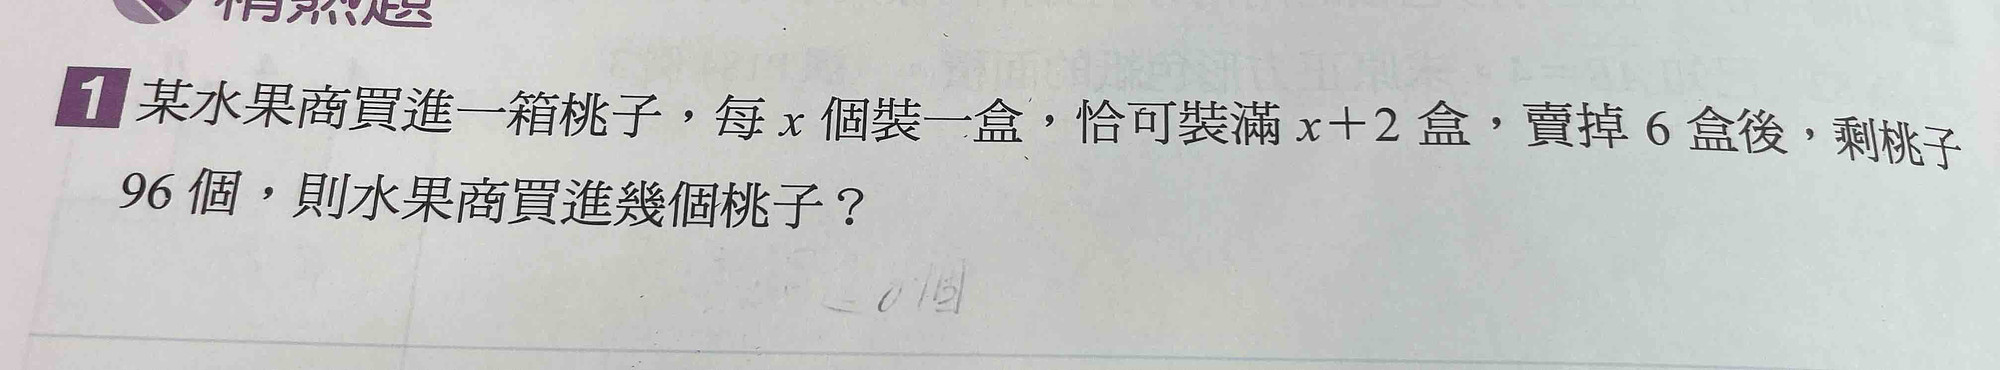 精熟題
1 某水果商買進一箱桃子，每 x 個裝一盒，恰可裝滿 x＋2 盒，賣掉 6 盒後，剩桃子
96 個，則水果商買進幾個桃子？
個